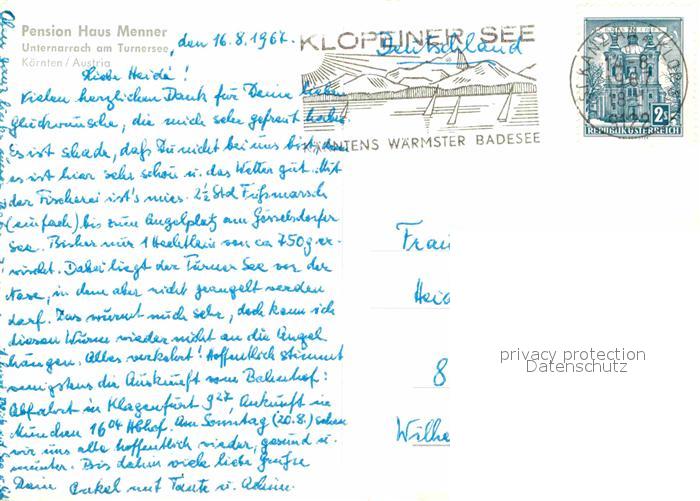 Pension Haus Menner
Unternarrach am Turnersee
Kärnten / Austria
, den 16.8.1967.
KLOPEINER SEE
KÄRNTENS WÄRMSTER BADESEE
2 S
REPUBLIK ÖSTERREICH
Deutschland
Liebe Heide!
Vielen herzlichen Dank für Deine lieben
Glückwünsche, die mich sehr gefreut haben.
Es ist schade, daß Du nicht bei uns bist, denn
es ist hier sehr schön u. das Wetter gut. Mit
der Fischerei ist's mies. 2½ Std Fußmarsch
(einfach) bis zum Angelplatz am Gösselsdorfer
See. Bisher nur 1 Hechtlein von ca 750g er-
wischt. Dabei liegt der Turner See vor der
Nase, in dem aber nicht geangelt werden
darf. Das wurmt mich sehr, doch kann ich
diesen Wurm wieder nicht an die Angel
hängen. Alles verkehrt! Hoffentlich stimmt
wenigstens die Auskunft vom Bahnhof:
Abfahrt in Klagenfurt 9 27, Ankunft in
München 16 04 Hbhof. Am Sonntag (20.8.) sehen
wir uns alle hoffentlich wieder, gesund u.
munter. Bis dahin viele liebe Grüße
Dein Onkel mit Tante u. Achim.
Frau
Heid
8
Wilhe
privacy protection
Datenschutz